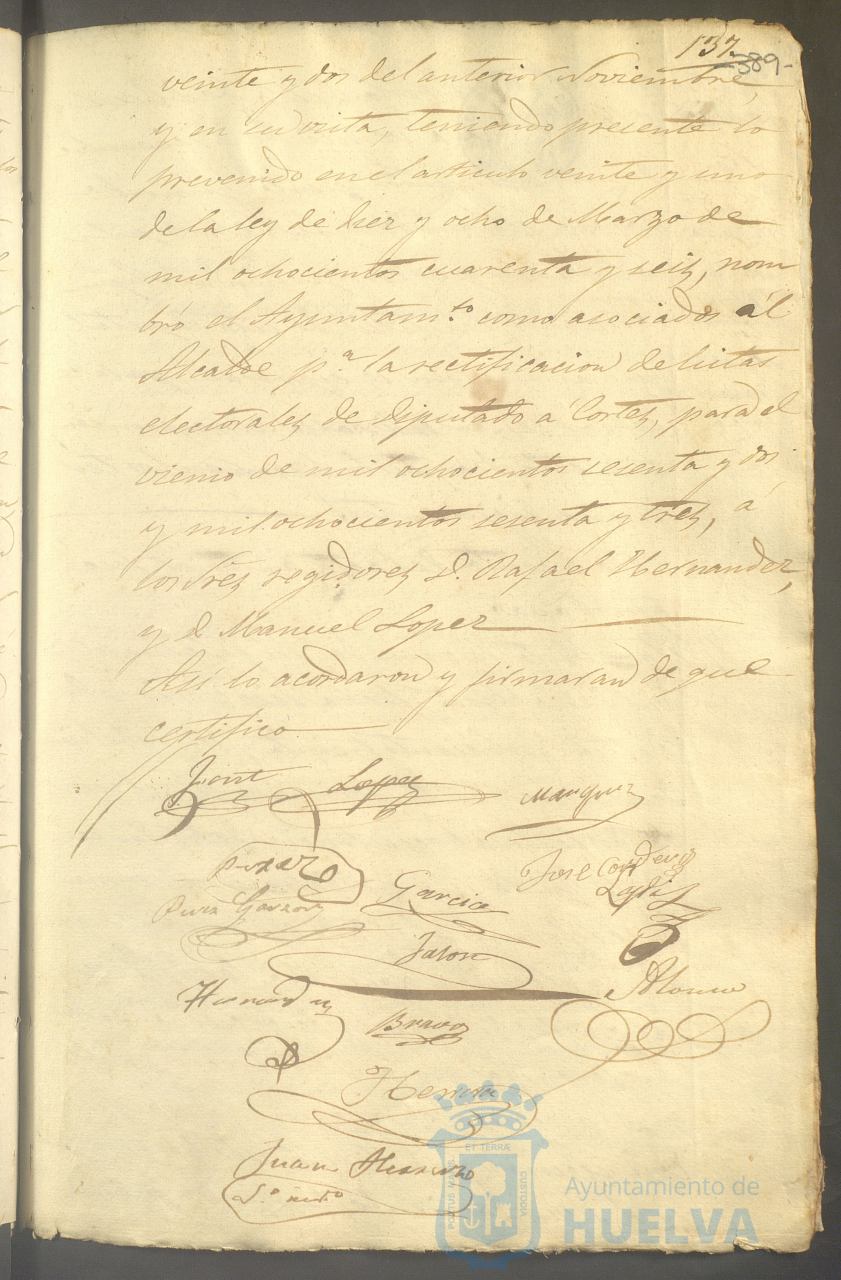 137.
389-
veinte y dos del anterior Noviembre,
y en su vista, teniendo presente lo
prevenido en el articulo veinte y uno
de la ley de diez y ocho de Marzo de
mil ochocientos cuarenta y seis, nom
bró el Ayuntam.to como asociados ál
Alcalde p.a la rectificacion de listas
electorales de Diputado á Cortes, para el
vienio de mil ochocientos sesenta y dos
y mil ochocientos sesenta y tres, á
los Sres regidores D. Rafael Hernandez,
y D Manuel Lopez
Asi lo acordaron y firmaran de que
certifico
Font Lopez Marquez
Garcia Jose
Jalon
Hernandez Alonso
Bravo
Herrera
Juan
S.o
ET TERRÆ
PORTUS MARIS
CUSTODIA
Ayuntamiento de
HUELVA